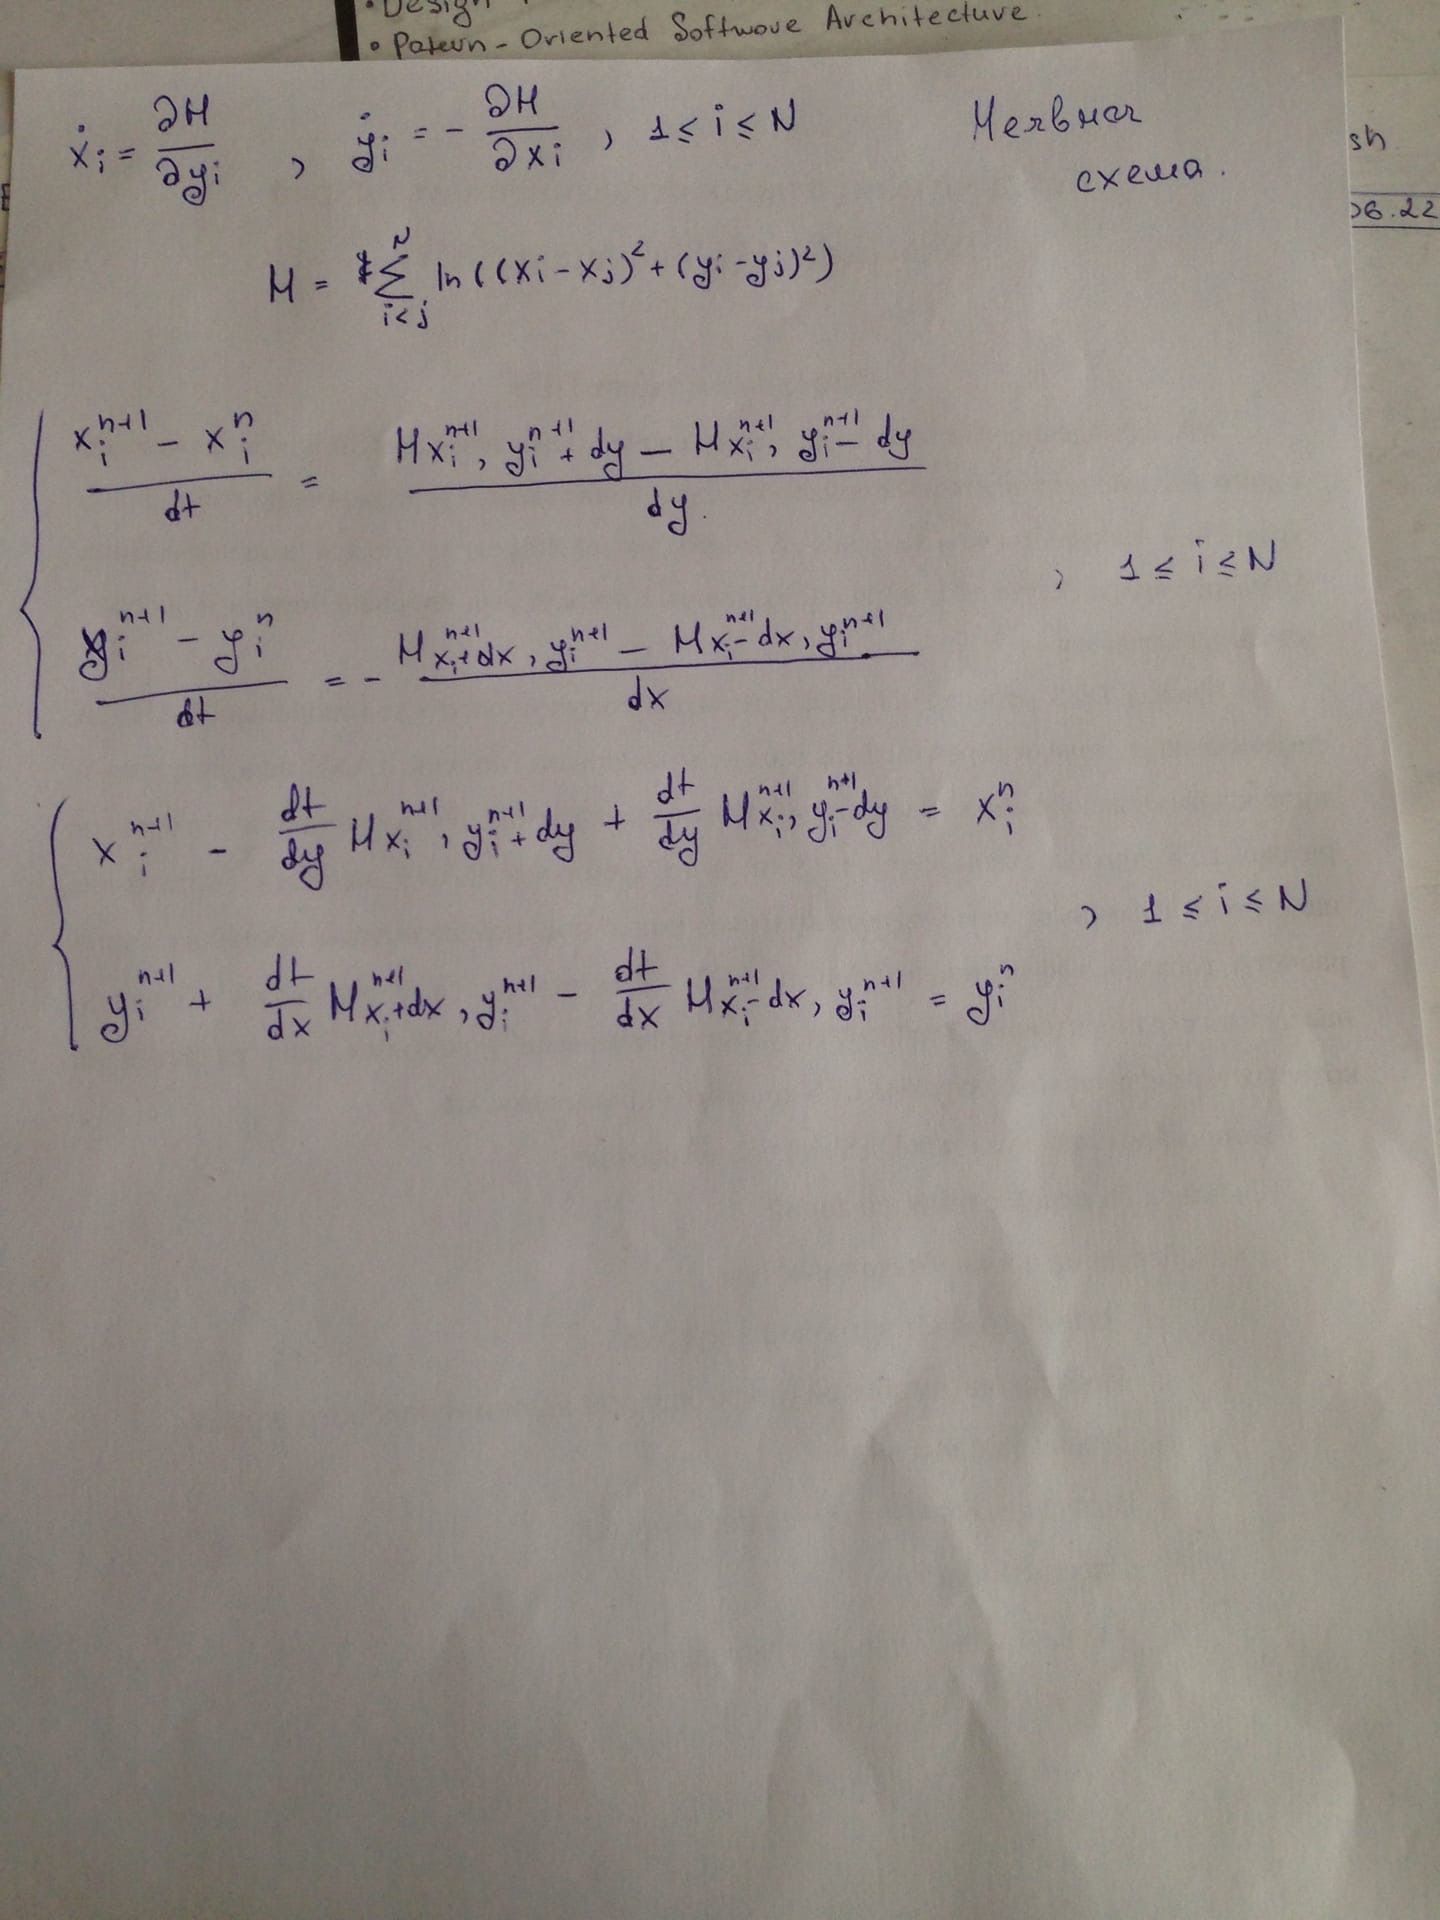 • Design
• Patern-Oriented Software Architecture.
sh
06.22
ẋᵢ = ∂H/∂yᵢ , ẏᵢ = - ∂H/∂xᵢ , 1 ≤ i ≤ N
Неявная
схема.
H = ∑_{i<j}^{N} ln((xᵢ - xⱼ)² + (yᵢ - yⱼ)²)
(xᵢⁿ⁺¹ - xᵢⁿ)/dt = (H xᵢⁿ⁺¹, yᵢⁿ⁺¹ + dy - H xᵢⁿ⁺¹, yᵢⁿ⁺¹ - dy)/dy
, 1 ≤ i ≤ N
(yᵢⁿ⁺¹ - yᵢⁿ)/dt = - (H xᵢⁿ⁺¹ + dx, yᵢⁿ⁺¹ - H xᵢⁿ⁺¹ - dx, yᵢⁿ⁺¹)/dx
xᵢⁿ⁺¹ - dt/dy H xᵢⁿ⁺¹, yᵢⁿ⁺¹ + dy + dt/dy H xᵢⁿ⁺¹, yᵢⁿ⁺¹ - dy = xᵢⁿ
, 1 ≤ i ≤ N
yᵢⁿ⁺¹ + dt/dx H xᵢⁿ⁺¹ + dx, yᵢⁿ⁺¹ - dt/dx H xᵢⁿ⁺¹ - dx, yᵢⁿ⁺¹ = yᵢⁿ